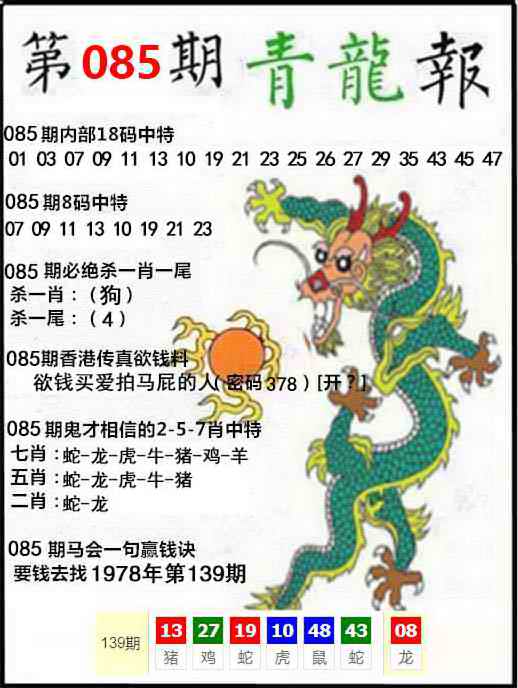 第085期青龍報
085期内部18码中特
01 03 07 09 11 13 10 19 21 23 25 26 27 29 35 43 45 47
085期8码中特
07 09 11 13 10 19 21 23
085 期必绝杀一肖一尾
杀一肖：（狗）
杀一尾：（4）
085期香港传真欲钱料
欲钱买爱拍马屁的人（密码378）[开？]
085期鬼才相信的2-5-7肖中特
七肖：蛇-龙-虎-牛-猪-鸡-羊
五肖：蛇-龙-虎-牛-猪
二肖：蛇-龙
085 期马会一句赢钱诀
要钱去找1978年第139期
139期 13 27 19 10 48 43 08
猪 鸡 蛇 虎 鼠 蛇 龙